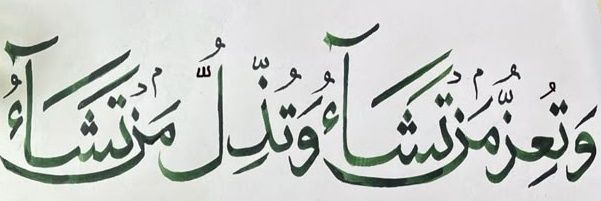 وَتُعِزُّ مَن تَشَآءُ وَتُذِلُّ مَن تَشَآءُ